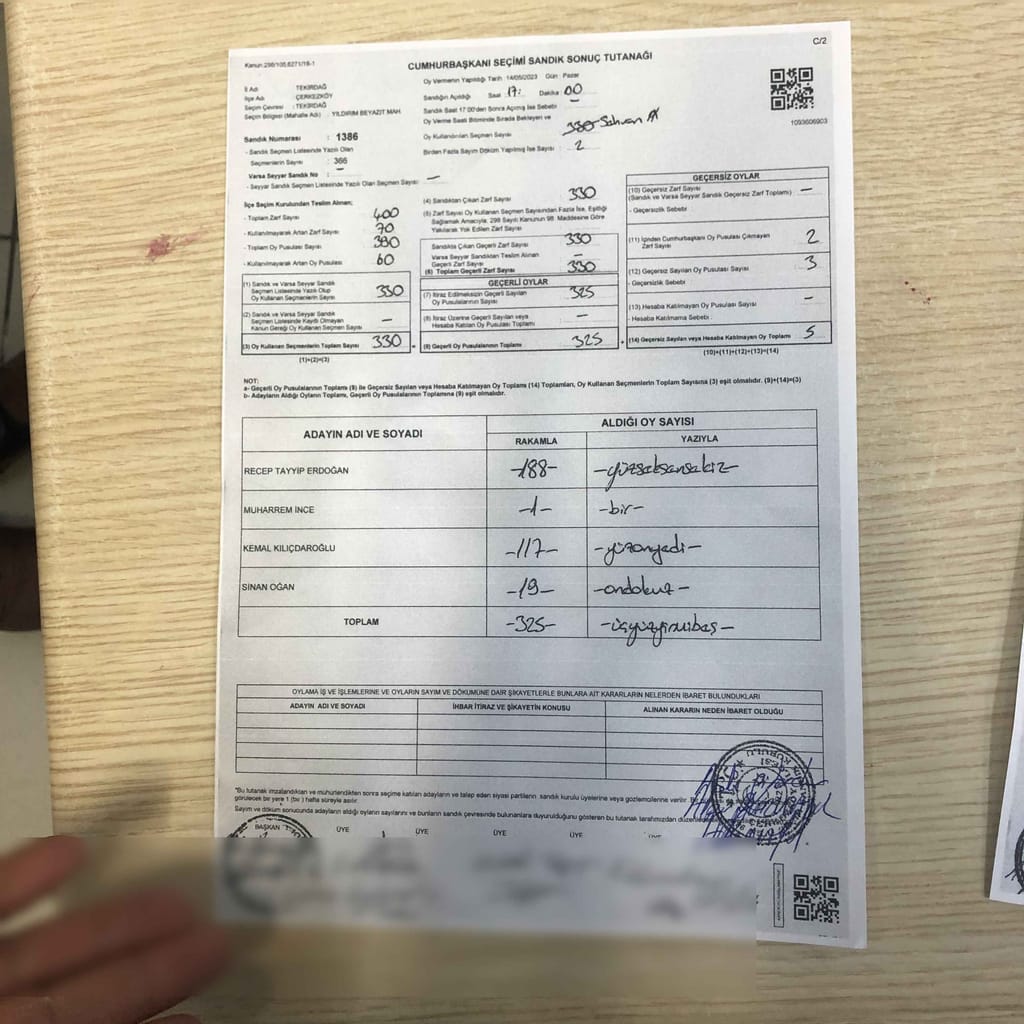 C/2
Kanun:298/105,6271/18-1
CUMHURBAŞKANI SEÇİMİ SANDIK SONUÇ TUTANAĞI
İl Adı : TEKİRDAĞ
İlçe Adı : ÇERKEZKÖY
Seçim Çevresi : TEKİRDAĞ
Seçim Bölgesi (Mahalle Adı) : YILDIRIM BEYAZIT MAH.
Sandık Numarası : 1386
- Sandık Seçmen Listesinde Yazılı Olan
Seçmenlerin Sayısı : 366
Varsa Seyyar Sandık No : —
- Seyyar Sandık Seçmen Listesinde Yazılı Olan Seçmen Sayısı : —
Oy Vermenin Yapıldığı Tarih : 14/05/2023 Gün : Pazar
Sandığın Açıldığı Saat 17: Dakika 00
Sandık Saat 17:00'den Sonra Açılmış İse Sebebi : —
Oy Verme Saati Bitiminde Sırada Bekleyen ve
Oy Kullandırılan Seçmen Sayısı :
Birden Fazla Sayım Döküm Yapılmış İse Sayısı : 2
1093606903
İlçe Seçim Kurulundan Teslim Alınan;
- Toplam Zarf Sayısı : 400
- Kullanılmayarak Artan Zarf Sayısı : 70
- Toplam Oy Pusulası Sayısı : 390
- Kullanılmayarak Artan Oy Pusulası : 60
(1) Sandık ve Varsa Seyyar Sandık
Seçmen Listesinde Yazılı Olup
Oy Kullanan Seçmenlerin Sayısı 330
(2) Sandık ve Varsa Seyyar Sandık
Seçmen Listesinde Kaydı Olmayan
Kanun Gereği Oy Kullanan Seçmen Sayısı —
(3) Oy Kullanan Seçmenlerin Toplam Sayısı 330
(1)+(2)=(3)
(4) Sandıktan Çıkan Zarf Sayısı : 330
(5) Zarf Sayısı Oy Kullanan Seçmen Sayısından Fazla İse, Eşitliği
Sağlamak Amacıyla; 298 Sayılı Kanunun 98. Maddesine Göre
Yakılarak Yok Edilen Zarf Sayısı :
Sandıkta Çıkan Geçerli Zarf Sayısı 330
Varsa Seyyar Sandıktan Teslim Alınan
Geçerli Zarf Sayısı —
(6) Toplam Geçerli Zarf Sayısı 330
GEÇERLİ OYLAR
(7) İtiraz Edilmeksizin Geçerli Sayılan
Oy Pusulalarının Sayısı 325
(8) İtiraz Üzerine Geçerli Sayılan veya
Hesaba Katılan Oy Pusulası Toplamı —
(9) Geçerli Oy Pusulalarının Toplamı 325
GEÇERSİZ OYLAR
(10) Geçersiz Zarf Sayısı
(Sandık ve Varsa Seyyar Sandık Geçersiz Zarf Toplamı) —
- Geçersizlik Sebebi :
(11) İçinden Cumhurbaşkanı Oy Pusulası Çıkmayan
Zarf Sayısı 2
(12) Geçersiz Sayılan Oy Pusulası Sayısı 3
- Geçersizlik Sebebi :
(13) Hesaba Katılmayan Oy Pusulası Sayısı —
- Hesaba Katılmama Sebebi :
(14) Geçersiz Sayılan veya Hesaba Katılmayan Oy Toplamı 5
(10)+(11)+(12)+(13)=(14)
NOT:
a- Geçerli Oy Pusulalarının Toplamı (9) ile Geçersiz Sayılan veya Hesaba Katılmayan Oy Toplamı (14) Toplamları, Oy Kullanan Seçmenlerin Toplam Sayısına (3) eşit olmalıdır. (9)+(14)=(3)
b- Adayların Aldığı Oyların Toplamı, Geçerli Oy Pusulalarının Toplamına (9) eşit olmalıdır.
ADAYIN ADI VE SOYADI
ALDIĞI OY SAYISI
RAKAMLA YAZIYLA
RECEP TAYYİP ERDOĞAN -188- -yüzseksensekiz-
MUHARREM İNCE -1- -bir-
KEMAL KILIÇDAROĞLU -117- -yüzonyedi-
SİNAN OĞAN -19- -ondokuz-
TOPLAM -325- -üçyüzyirmibeş-
OYLAMA İŞ VE İŞLEMLERİNE VE OYLARIN SAYIM VE DÖKÜMÜNE DAİR ŞİKAYETLERLE BUNLARA AİT KARARLARIN NELERDEN İBARET BULUNDUKLARI
ADAYIN ADI VE SOYADI İHBAR İTİRAZ VE ŞİKAYETİN KONUSU ALINAN KARARIN NEDEN İBARET OLDUĞU
"Bu tutanak imzalandıktan ve mühürlendikten sonra seçime katılan adayların ve talep eden siyasi partilerin sandık kurulu üyelerine veya gözlemcilerine verilir. Bir
görülecek bir yere 1 (bir) hafta süreyle asılır.
Sayım ve döküm sonucunda adayların aldığı oyların sayılarını ve bunların sandık çevresinde bulunanlara duyurulduğunu gösteren bu tutanak tarafımızdan
BAŞKAN ÜYE ÜYE ÜYE ÜYE ÜYE